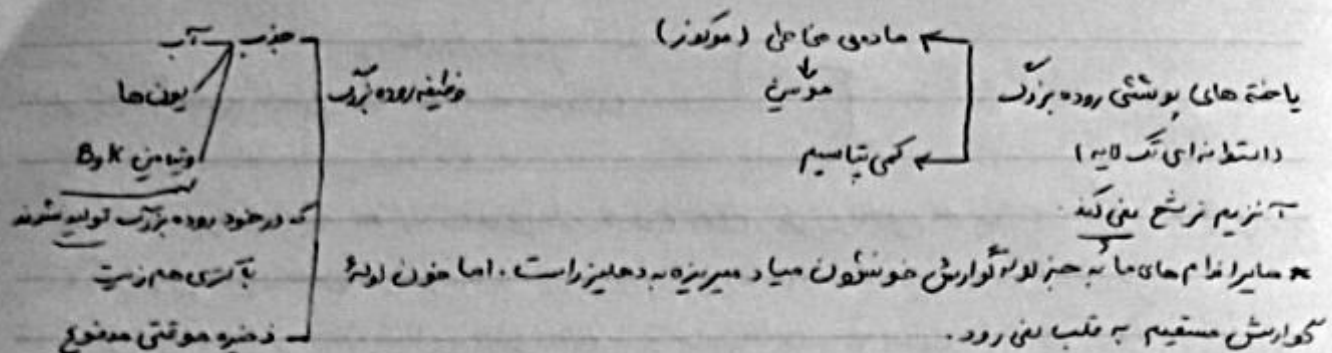 یاخته های پوششی روده بزرگ
(استوانه ای تک لایه)
آنزیم ترشح نمی کند.
ماده‌ی مخاطی (موکوز)
موسین
کمی پتاسیم
وظیفه روده بزرگ
جذب آب
یون ها
ویتامین K و B
که در خود روده بزرگ تولید شدند
باکتری هم زیست
ذخیره موقتی مدفوع
* سایر اندام های ما به جز لوله گوارش خونشون میاد میریزه به دهلیز راست. اما خون لولهٔ
گوارش مستقیم به قلب نمی رود.